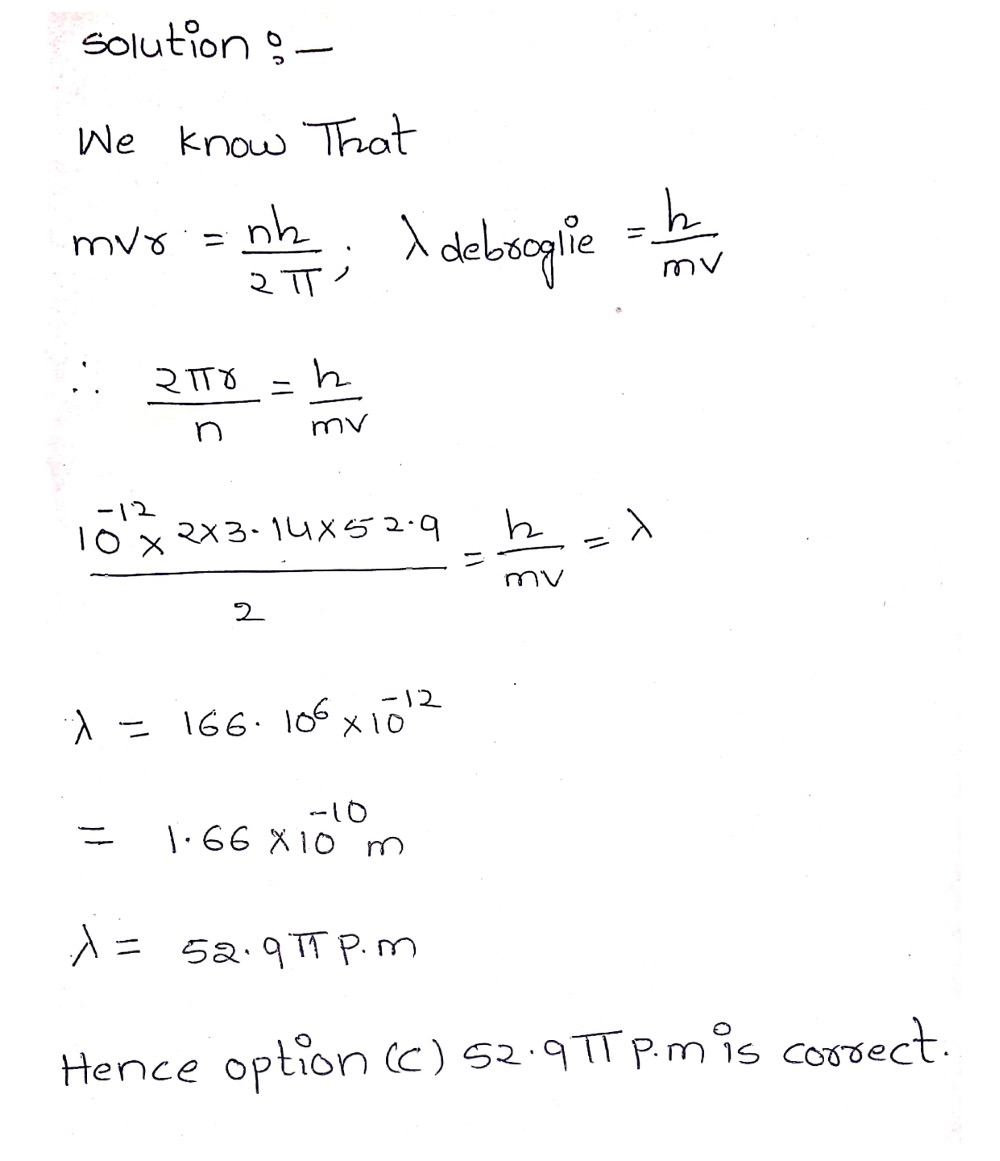 Solution :-
We know That
mvr = nh/2π ; λ debroglie = h/mv
∴ 2πr/n = h/mv
10⁻¹² × 2×3.14×52.9 / 2 = h/mv = λ
λ = 166.106 × 10⁻¹²
= 1.66 × 10⁻¹⁰ m
λ = 52.9 π p.m
Hence option (c) 52.9 π p.m is correct.